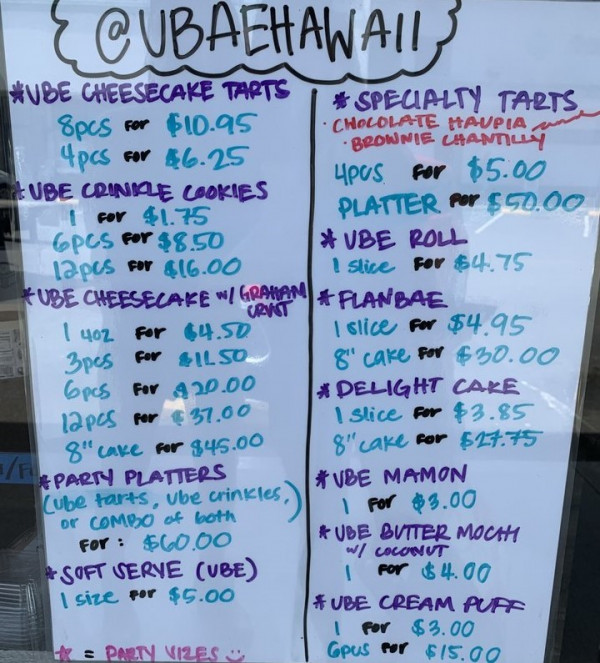 @UBAEHAWAII
*UBE CHEESECAKE TARTS
8pcs FOR $10.95
4pcs FOR $6.25
*UBE CRINKLE COOKIES
1 FOR $1.75
6pcs FOR $8.50
12pcs FOR $16.00
*UBE CHEESECAKE W/ GRAHAM
CRUST
1 4OZ FOR $4.50
3pcs FOR $11.50
6pcs FOR $20.00
12pcs FOR $37.00
8" cake FOR $45.00
*PARTY PLATTERS
(ube tarts, ube crinkles,
or COMBO of both)
FOR: $60.00
*SOFT SERVE (UBE)
1 size FOR $5.00
* = PARTY VIZES
* SPECIALTY TARTS
· CHOCOLATE HAUPIA
· BROWNIE CHANTILLY
4pcs FOR $5.00
PLATTER FOR $50.00
* UBE ROLL
1 slice FOR $4.75
* FLANBAE
1 slice FOR $4.95
8" cake FOR $30.00
* DELIGHT CAKE
1 slice FOR $3.85
8" cake FOR $27.75
* UBE MAMON
1 FOR $3.00
* UBE BUTTER MOCHI
W/ COCONUT
1 FOR $4.00
* UBE CREAM PUFF
1 FOR $3.00
6pcs FOR $15.00